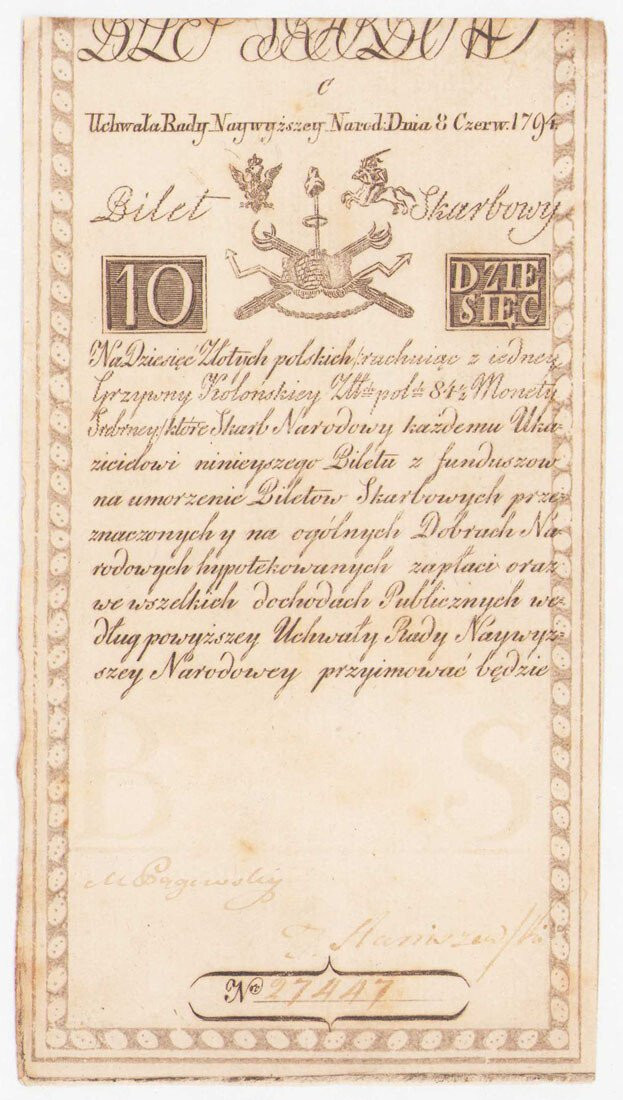 BILET SKARBOWY
C
Uchwała Rady Naywyższey Narod: Dnia 8 Czerw. 1794.
Bilet Skarbowy
10 DZIE
SIĘĆ
Na Dziesięć Złotych polskich/rachuiąc z iedney
Grzywny Kolońskiey Złł. pol. 84½ Monety
Srebrney/które Skarb Narodowy każdemu Uka-
zicielowi ninieyszego Biletu z funduszow
na umorzenie Biletow Skarbowych prze-
znaczonych y na ogólnych Dobrach Na-
rodowych hypotekowanych zapłaci oraz
we wszelkich dochodach Publicznych we-
dług powyższey Uchwały Rady Naywyż-
szey Narodowey przyimować będzie
B S
Staniszewski
Nro 27447